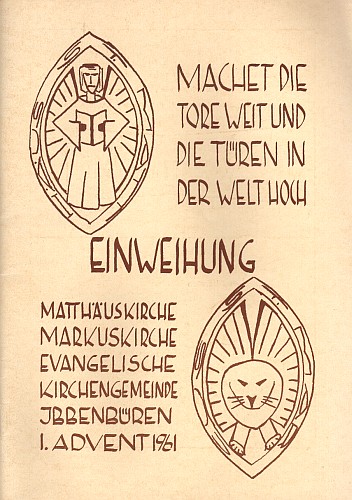 MACHET DIE
TORE WEIT UND
DIE TÜREN IN
DER WELT HOCH
EINWEIHUNG
MATTHÄUSKIRCHE
MARKUSKIRCHE
EVANGELISCHE
KIRCHENGEMEINDE
JBBENBÜREN
1. ADVENT 1961